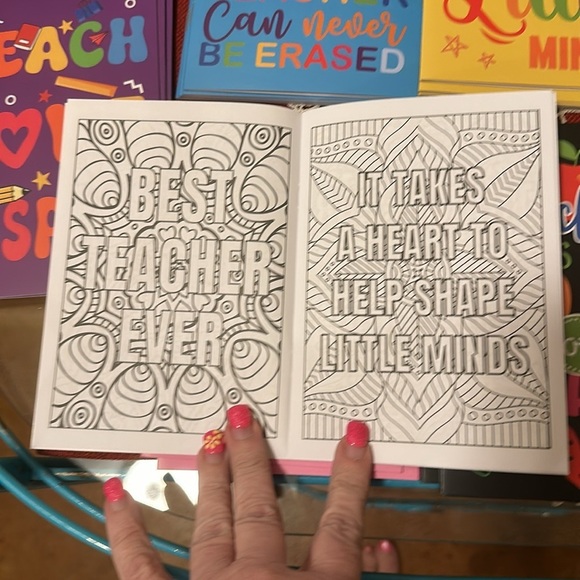 EACH
TEACHER
Can never
BE ERASED
MIN
BEST
TEACHER
EVER
IT TAKES
A HEART TO
HELP SHAPE
LITTLE MINDS